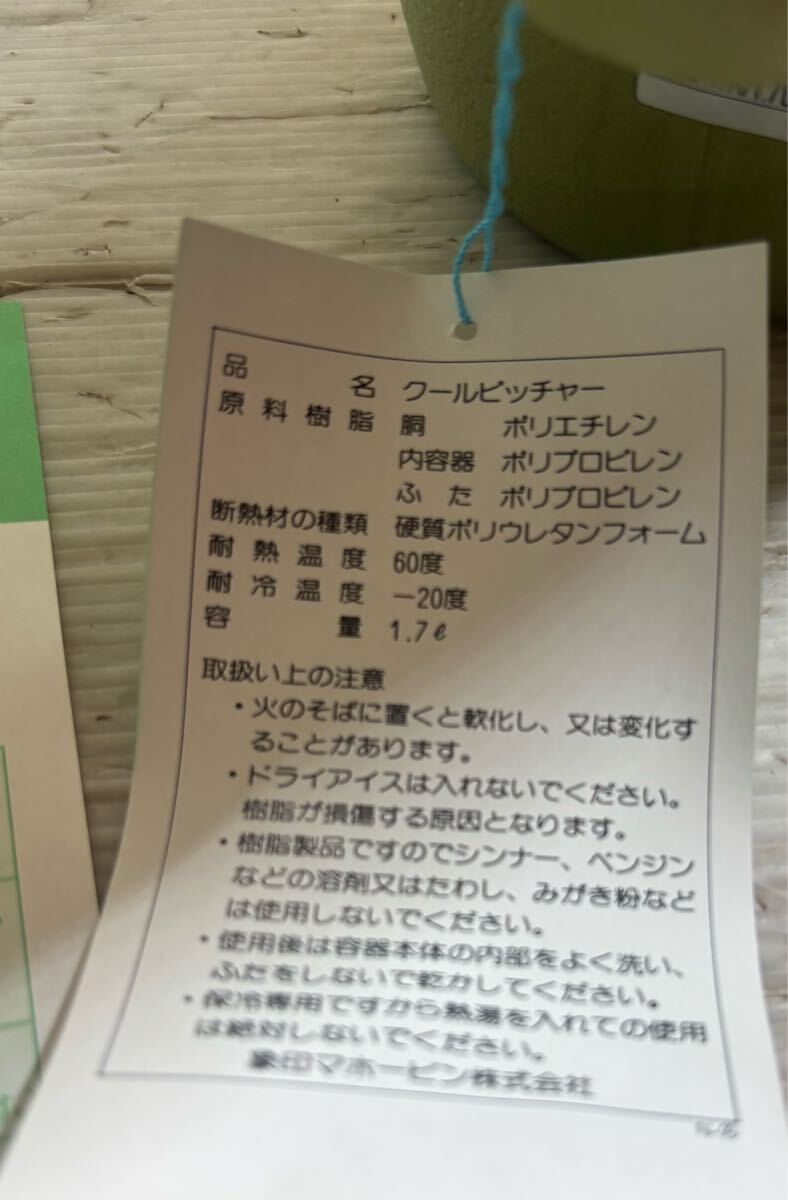 品名 クールピッチャー
原料樹脂 胴 ポリエチレン
内容器 ポリプロピレン
ふた ポリプロピレン
断熱材の種類 硬質ポリウレタンフォーム
耐熱温度 60度
耐冷温度 −20度
容量 1.7ℓ
取扱い上の注意
・火のそばに置くと軟化し、又は変化す
ることがあります。
・ドライアイスは入れないでください。
樹脂が損傷する原因となります。
・樹脂製品ですのでシンナー、ベンジン
などの溶剤又はたわし、みがき粉など
は使用しないでください。
・使用後は容器本体の内部をよく洗い、
ふたをしないで乾かしてください。
・保冷専用ですから熱湯を入れての使用
は絶対しないでください。
象印マホービン株式会社